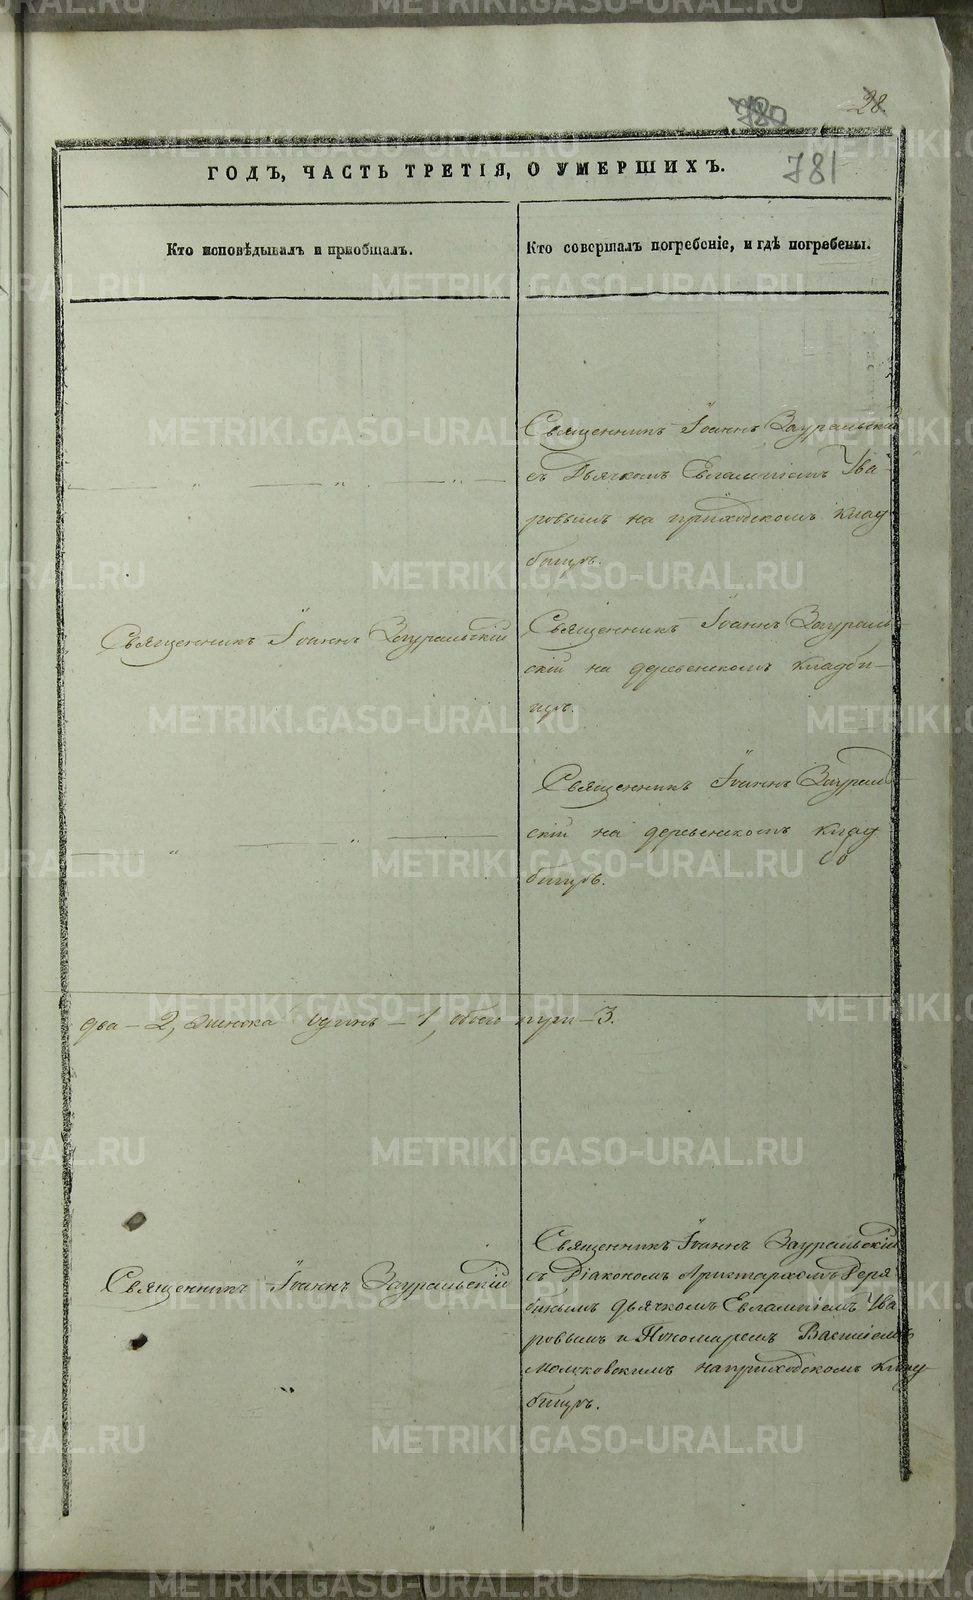 28.
780
781
ГОДЪ, ЧАСТЬ ТРЕТІЯ, О УМЕРШИХЪ.
Кто исповѣдывалъ и пріобщалъ.
Кто совершалъ погребеніе, и гдѣ погребены.
Священникъ Іоаннъ Зауральскій
съ Дьячкомъ Евлампіемъ Ува-
ровымъ на приходскомъ клад
бищѣ.
Священникъ Іоаннъ Зауральскій
Священникъ Іоаннъ Заураль
скій на деревенскомъ кладби-
щѣ.
Священникъ Іоаннъ Заураль
скій на деревенскомъ клад
бищѣ.
два - 2, женска одинъ - 1, обоего пола - 3.
Священникъ Іоаннъ Зауральскій
Священникъ Іоаннъ Зауральскій
съ Діакономъ Аристархомъ Серя
бинымъ дьячкомъ Евлампіемъ Ува
ровымъ и Пономаремъ Василіемъ
на приходскомъ клад
бищѣ.
METRIKI.GASO-URAL.RU